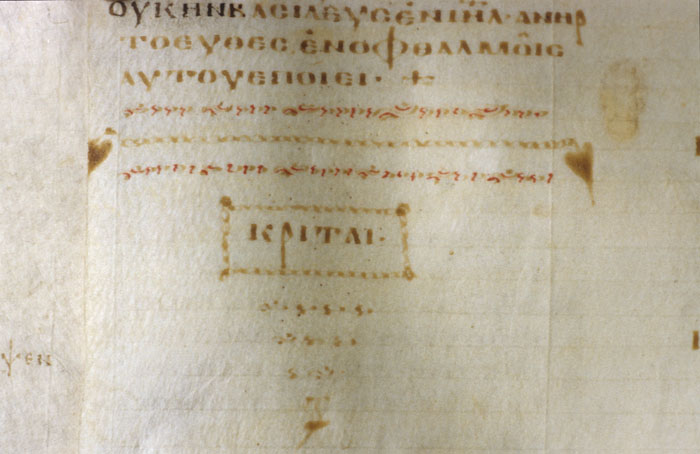 ΟΥΚΗΝΒΑCΙΛΕΥCΕΝΙΗΛ·ΑΝΗΡ
ΤΟΕΥΘΕCΕΝΟΦΘΑΛΜΟΙC
ΑΥΤΟΥΕΠΟΙΕΙ·
ΚΡΙΤΑΙ·